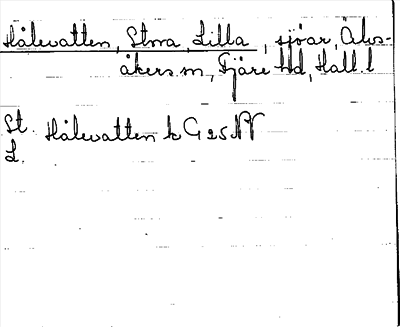 Hålevatten, Stora, Lilla, sjöar, Älvs-
åkers sn, Fjäre hd, Hall. l
St. Hålevatten k G 25 NV
L.